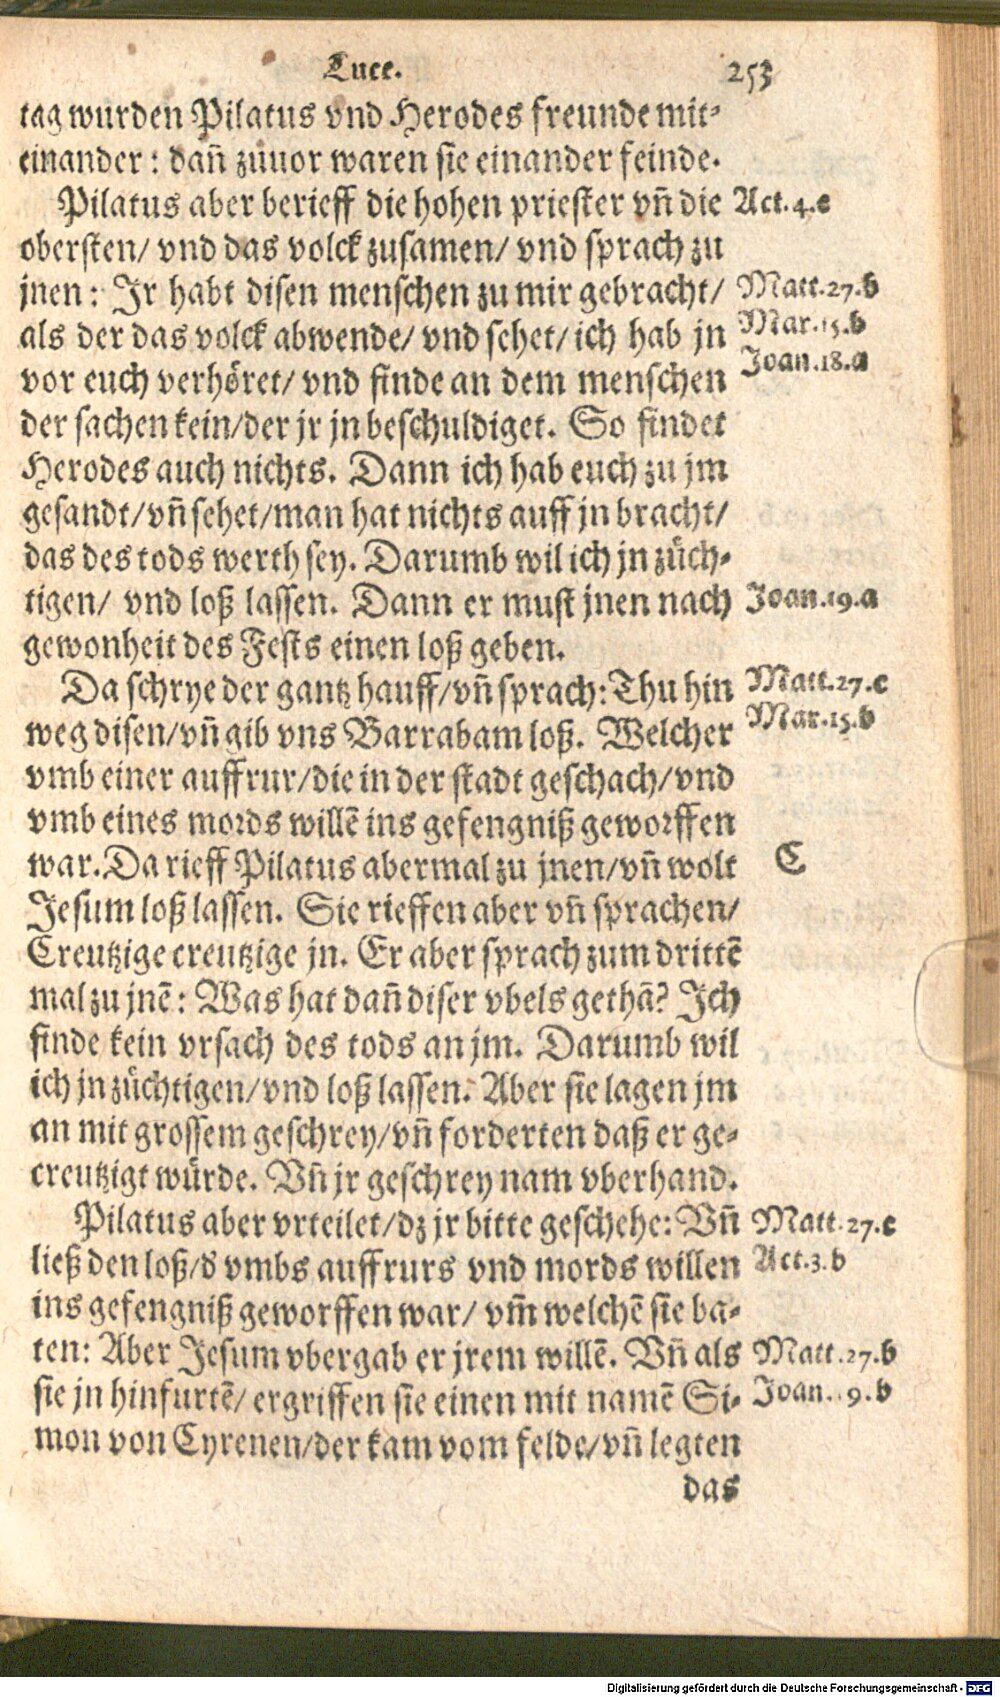 Luce. 253
tag wurden Pilatus vnd Herodes freunde mit⸗
einander: dañ zuuor waren sie einander feinde.
Pilatus aber berieff die hohen priester vñ die Act. 4. e
obersten/ vnd das volck zusamen/ vnd sprach zu
jnen: Ir habt disen menschen zu mir gebracht/ Matt. 27. b
als der das volck abwende/ vnd sehet/ ich hab jn Mar. 15. b
vor euch verhöret/ vnd finde an dem menschen Joan. 18. a
der sachen kein/der jr jn beschuldiget. So findet
Herodes auch nichts. Dann ich hab euch zu jm
gesandt/vñ sehet/man hat nichts auff jn bracht/
das des tods werth sey. Darumb wil ich jn züch⸗
tigen/ vnd loß lassen. Dann er must jnen nach Joan. 19. a
gewonheit des Fests einen loß geben.
Da schrye der gantz hauff/vñ sprach: Thu hin Matt. 27. c
weg disen/vñ gib vns Barrabam loß. Welcher Mar. 15. b
vmb einer auffrur/die in der stadt geschach/vnd
vmb eines mords willē ins gefengniß geworffen
war. Da rieff Pilatus abermal zu jnen/vñ wolt C
Jesum loß lassen. Sie rieffen aber vñ sprachen/
Creutzige creutzige jn. Er aber sprach zum drittē
mal zu jnē: Was hat dañ diser vbels gethā? Ich
finde kein vrsach des tods an jm. Darumb wil
ich jn züchtigen/vnd loß lassen. Aber sie lagen jm
an mit grossem geschrey/vñ forderten daß er ge⸗
creutzigt würde. Vñ jr geschrey nam vberhand.
Pilatus aber vrteilet/dz jr bitte geschehe: Vñ Matt. 27. c
ließ den loß/d vmbs auffrurs vnd mords willen Act. 3. b
ins gefengniß geworffen war/ vm̄ welchē sie ba⸗
ten: Aber Jesum vbergab er jrem willē. Vñ als Matt. 27. b
sie jn hinfurtē/ ergriffen sie einen mit namē Si⸗ Joan. 19. b
mon von Cyrenen/der kam vom felde/vñ legten
das
Digitalisierung gefördert durch die Deutsche Forschungsgemeinschaft - DFG